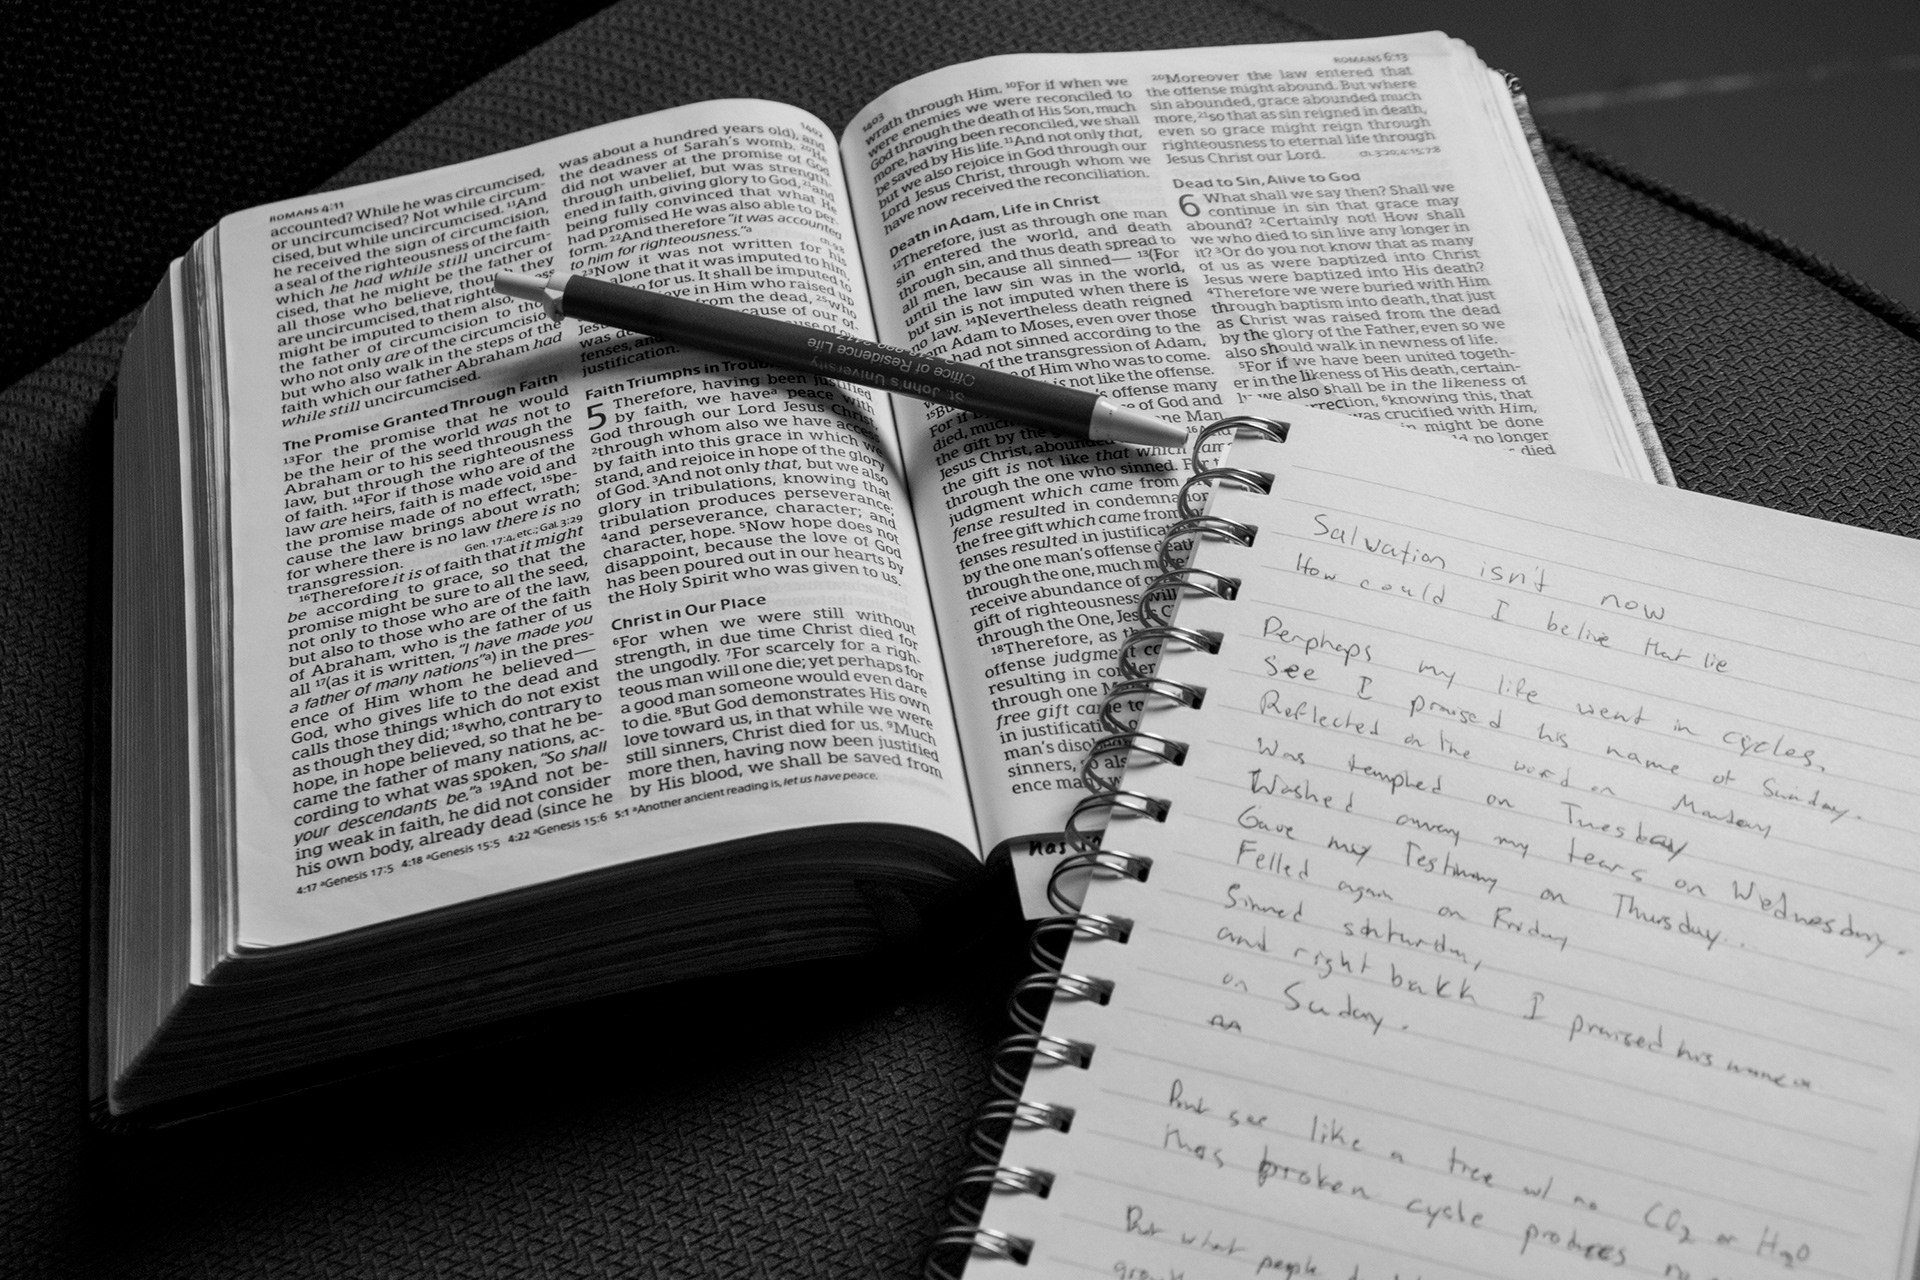 ROMANS 4:11
1402
accounted? While he was circumcised,
or uncircumcised? Not while circum-
cised, but while uncircumcised. 11And
he received the sign of circumcision,
a seal of the righteousness of the faith
which he had while still uncircum-
cised, that he might be the father of
all those who believe, though they
are uncircumcised, that
might be imputed to them also,
the father of circumcision to
who not only are of the circumcision
but who also walk in the steps of the
faith which our father Abraham had
while still uncircumcised.
The Promise Granted Through Faith
13For the promise that he would
be the heir of the world was not to
Abraham or to his seed through the
law, but through the righteousness
of faith. 14For if those who are of the
law are heirs, faith is made void and
the promise made of no effect, 15be-
cause the law brings about wrath;
for where there is no law there is no
transgression. Gen. 17:4, etc.; Gal. 3:29
16Therefore it is of faith that it might
be according to grace, so that the
promise might be sure to all the seed,
not only to those who are of the law,
but also to those who are of the faith
of Abraham, who is the father of us
all 17(as it is written, "I have made you
a father of many nations"a) in the pres-
ence of Him whom he believed—
God, who gives life to the dead and
calls those things which do not exist
as though they did; 18who, contrary to
hope, in hope believed, so that he be-
came the father of many nations, ac-
cording to what was spoken, "So shall
your descendants be."a 19And not be-
ing weak in faith, he did not consider
his own body, already dead (since he
was about a hundred years old), and
the deadness of Sarah's womb. 20He
did not waver at the promise of God
through unbelief, but was strength-
ened in faith, giving glory to God, 21and
being fully convinced that what He
had promised He was also able to per-
form. 22And therefore "it was accounted
to him for righteousness."a
23Now it was not written for his
alone that it was imputed to him,
for us. It shall be imputed to
in Him who raised up
from the dead, 25who
because of our of-
fenses, and
justification.
Faith Triumphs in
5 Therefore, having been justified
by faith, we havea peace with
God through our Lord Jesus Christ,
2through whom also we have access
by faith into this grace in which we
stand, and rejoice in hope of the glory
of God. 3And not only that, but we also
glory in tribulations, knowing that
tribulation produces perseverance;
4and perseverance, character; and
character, hope. 5Now hope does not
disappoint, because the love of God
has been poured out in our hearts by
the Holy Spirit who was given to us.
Christ in Our Place
6For when we were still without
strength, in due time Christ died for
the ungodly. 7For scarcely for a righ-
teous man will one die; yet perhaps for
a good man someone would even dare
to die. 8But God demonstrates His own
love toward us, in that while we were
still sinners, Christ died for us. 9Much
more then, having now been justified
by His blood, we shall be saved from
4:17 aGenesis 17:5 4:18 aGenesis 15:5 4:22 aGenesis 15:6 5:1 aAnother ancient reading is, let us have peace.
1403
ROMANS 6:13
wrath through Him. 10For if when we
were enemies we were reconciled to
God through the death of His Son, much
more, having been reconciled, we shall
be saved by His life. 11And not only that,
but we also rejoice in God through our
Lord Jesus Christ, through whom we
have now received the reconciliation.
Death in Adam, Life in Christ
12Therefore, just as through one man
sin entered the world, and death
through sin, and thus death spread to
all men, because all sinned— 13(For
until the law sin was in the world,
but sin is not imputed when there is
no law. 14Nevertheless death reigned
Adam to Moses, even over those
had not sinned according to the
of the transgression of Adam,
of Him who was to come.
is not like the offense.
offense many
of God and
one Man,
Jesus Christ,
the gift is not like that which
through the one who sinned. For
judgment which came from
fense resulted in
the free gift which came from
fenses resulted in
by the one man's offense death
through the one, much more
receive abundance of
gift of righteousness will
through the One,
18Therefore, as
offense judgment
resulting in
through one
free gift came to
in
man's
sinners,
20Moreover the law entered that
the offense might abound. But where
sin abounded, grace abounded much
more, 21so that as sin reigned in death,
even so grace might reign through
righteousness to eternal life through
Jesus Christ our Lord.
Dead to Sin, Alive to God
6 What shall we say then? Shall we
continue in sin that grace may
abound? 2Certainly not! How shall
we who died to sin live any longer in
it? 3Or do you not know that as many
of us as were baptized into Christ
Jesus were baptized into His death?
4Therefore we were buried with Him
through baptism into death, that just
as Christ was raised from the dead
by the glory of the Father, even so we
also should walk in newness of life.
5For if we have been united togeth-
er in the likeness of His death, certain-
ly we also shall be in the likeness of
6knowing this, that
was crucified with Him,
might be done
no longer
died
St. John's University
Office of Residence Life
has
Salvation isn't now
How could I belive that lie
Perphaps my life went in cycles.
See I praised his name of Sunday.
Reflected on the word on Monday
Was tempted on Tuesday
Washed away my tears on Wednesday.
Gave my Testimony on Thursday...
Felled again on Friday
Sinned saturday,
and right bakk I praised his name
on Sunday.
But see like a tree w/ no CO2 or H2O
this broken cycle produces no
But what people